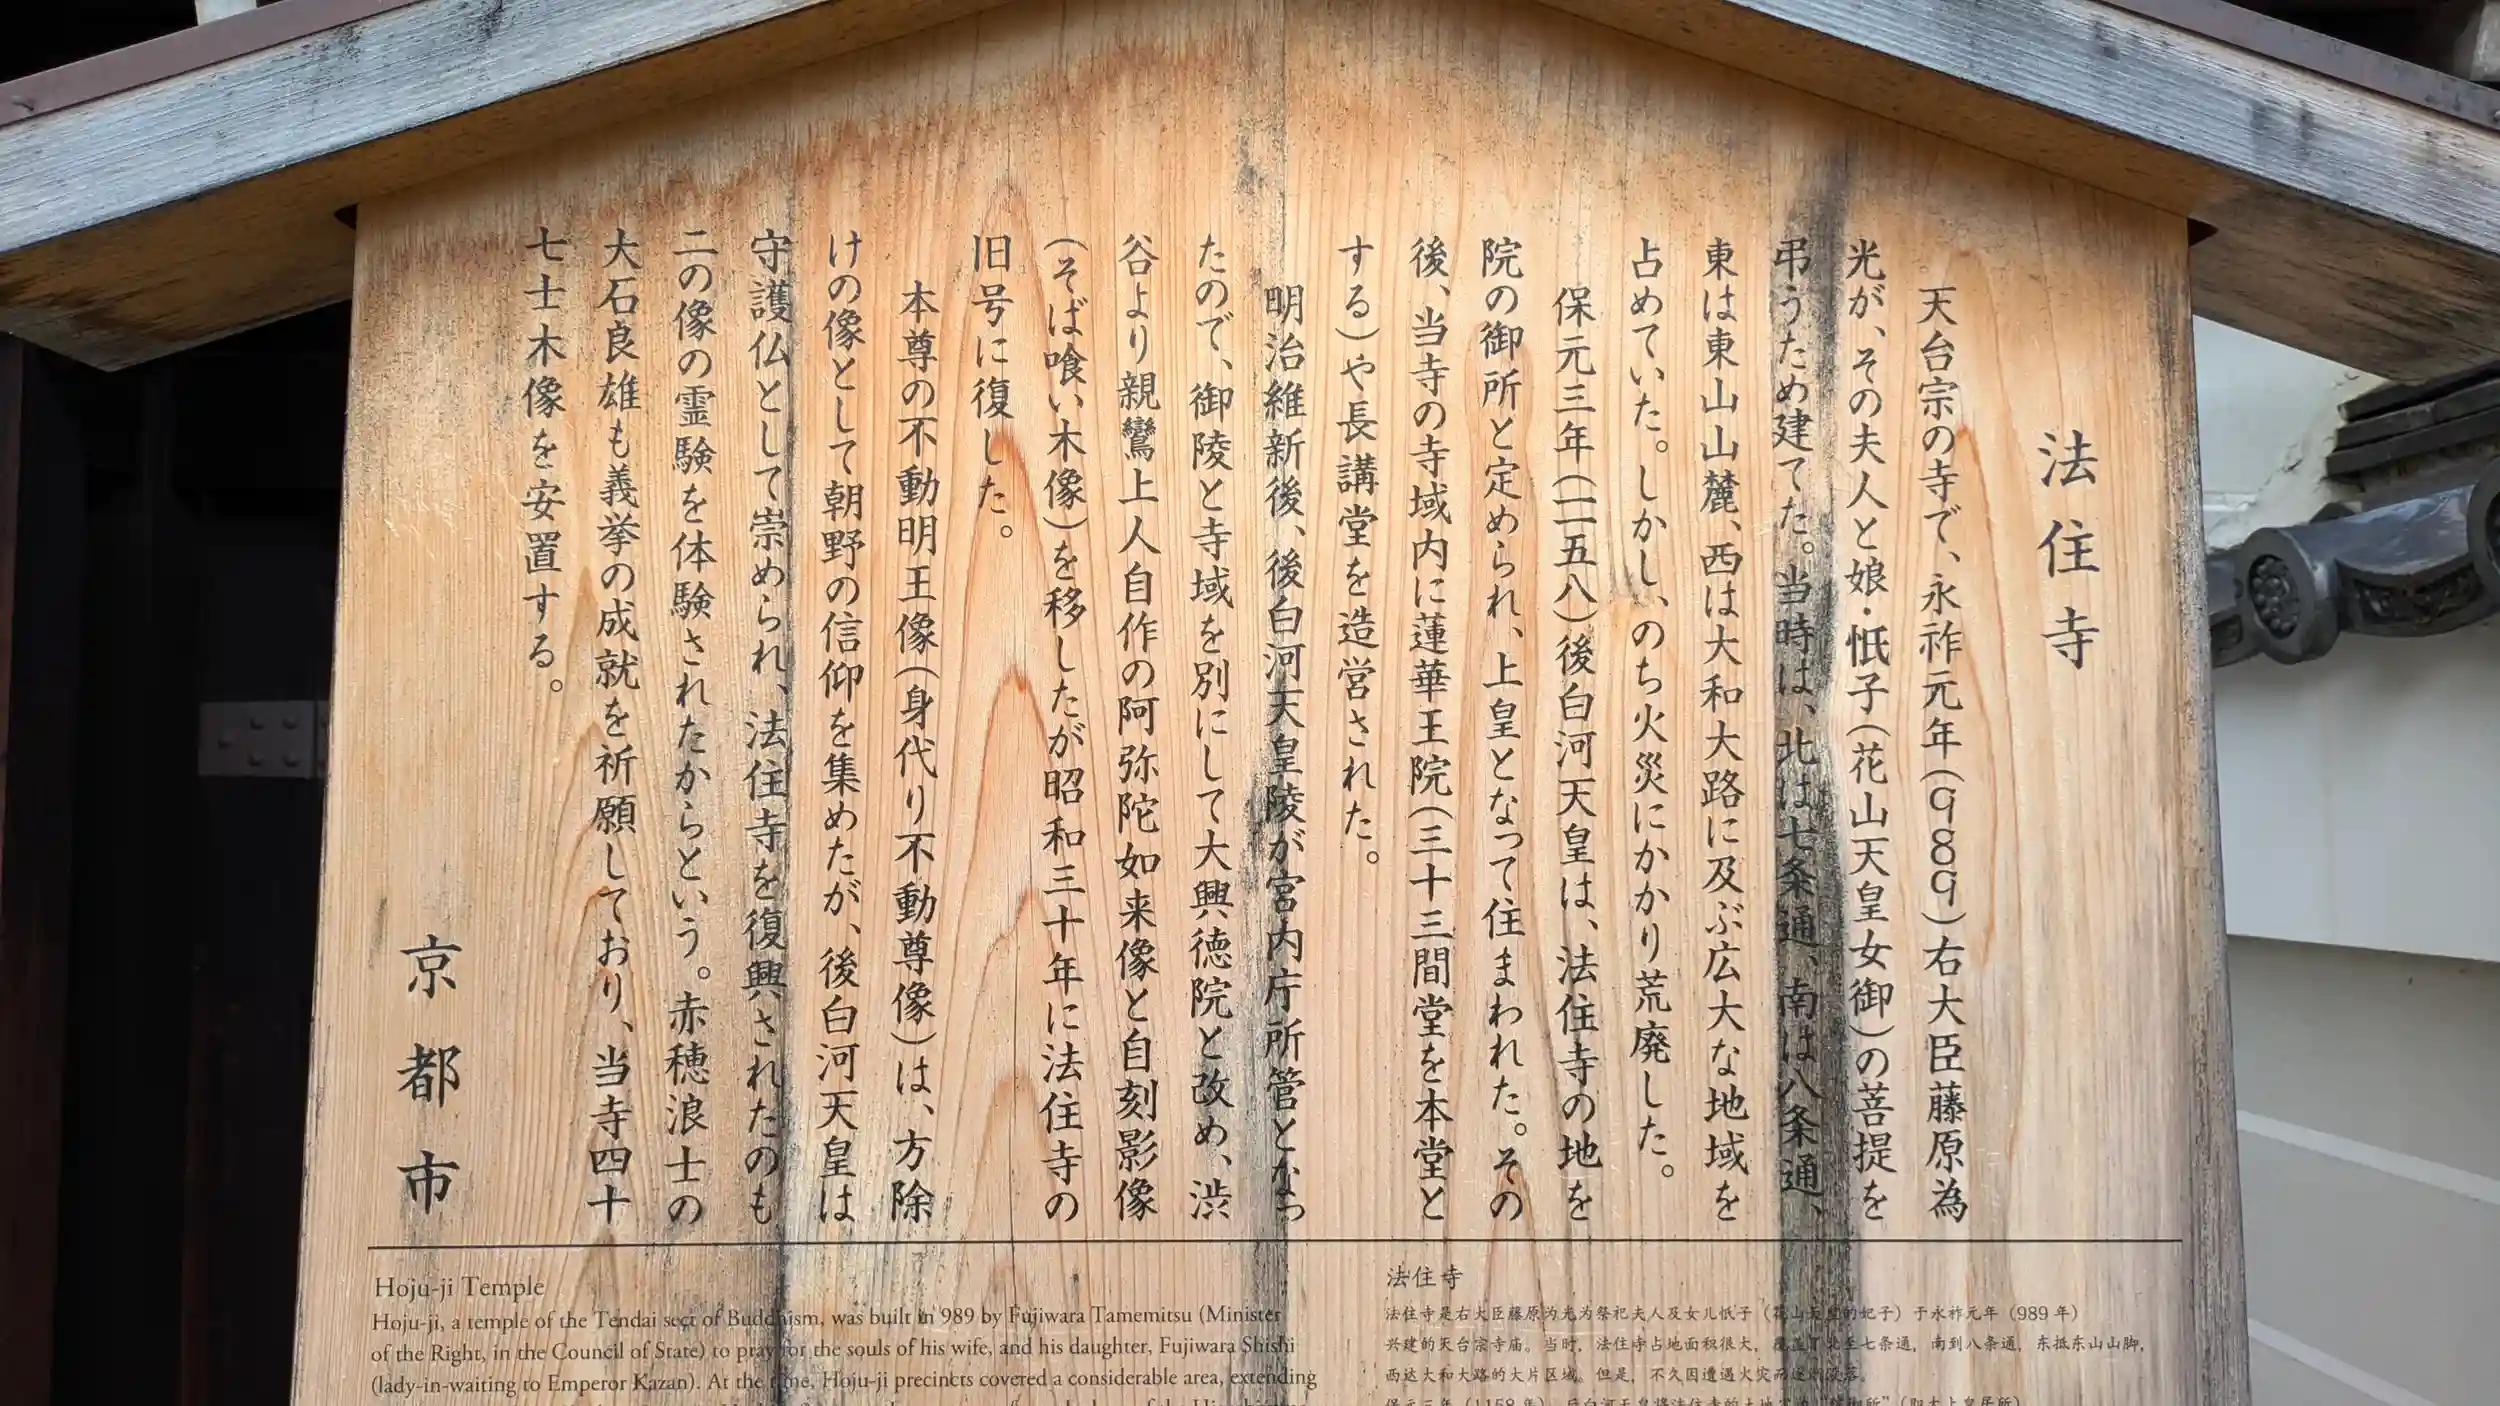 法住寺
天台宗の寺で、永祚元年(989)右大臣藤原為
光が、その夫人と娘・忯子(花山天皇女御)の菩提を
弔うため建てた。当時は、北は七条通、南は八条通、
東は東山山麓、西は大和大路に及ぶ広大な地域を
占めていた。しかし、のち火災にかかり荒廃した。
保元三年(一一五八)後白河天皇は、法住寺の地を
院の御所と定められ、上皇となって住まわれた。その
後、当寺の寺域内に蓮華王院(三十三間堂を本堂と
する)や長講堂を造営された。
明治維新後、後白河天皇陵が宮内庁所管となっ
たので、御陵と寺域を別にして大興徳院と改め、渋
谷より親鸞上人自作の阿弥陀如来像と自刻影像
(そば喰い木像)を移したが昭和三十年に法住寺の
旧号に復した。
本尊の不動明王像(身代り不動尊像)は、方除
けの像として朝野の信仰を集めたが、後白河天皇は
守護仏として崇められ、法住寺を復興されたのも
二の像の霊験を体験されたからという。赤穂浪士の
大石良雄も義挙の成就を祈願しており、当寺四十
七士木像を安置する。
京都市
Hoju-ji Temple
Hoju-ji, a temple of the Tendai sect of Buddhism, was built in 989 by Fujiwara Tamemitsu (Minister
of the Right, in the Council of State) to pray for the souls of his wife, and his daughter, Fujiwara Shishi
(lady-in-waiting to Emperor Kazan). At the time, Hoju-ji precincts covered a considerable area, extending
法住寺
法住寺是右大臣藤原为光为祭祀夫人及女儿忯子（花山天皇的妃子）于永祚元年（989 年）
兴建的天台宗寺庙。当时，法住寺占地面积很大，覆盖了北至七条通，南到八条通，东抵东山山脚，
西达大和大路的大片区域。但是，不久因遭遇火灾而逐渐没落。